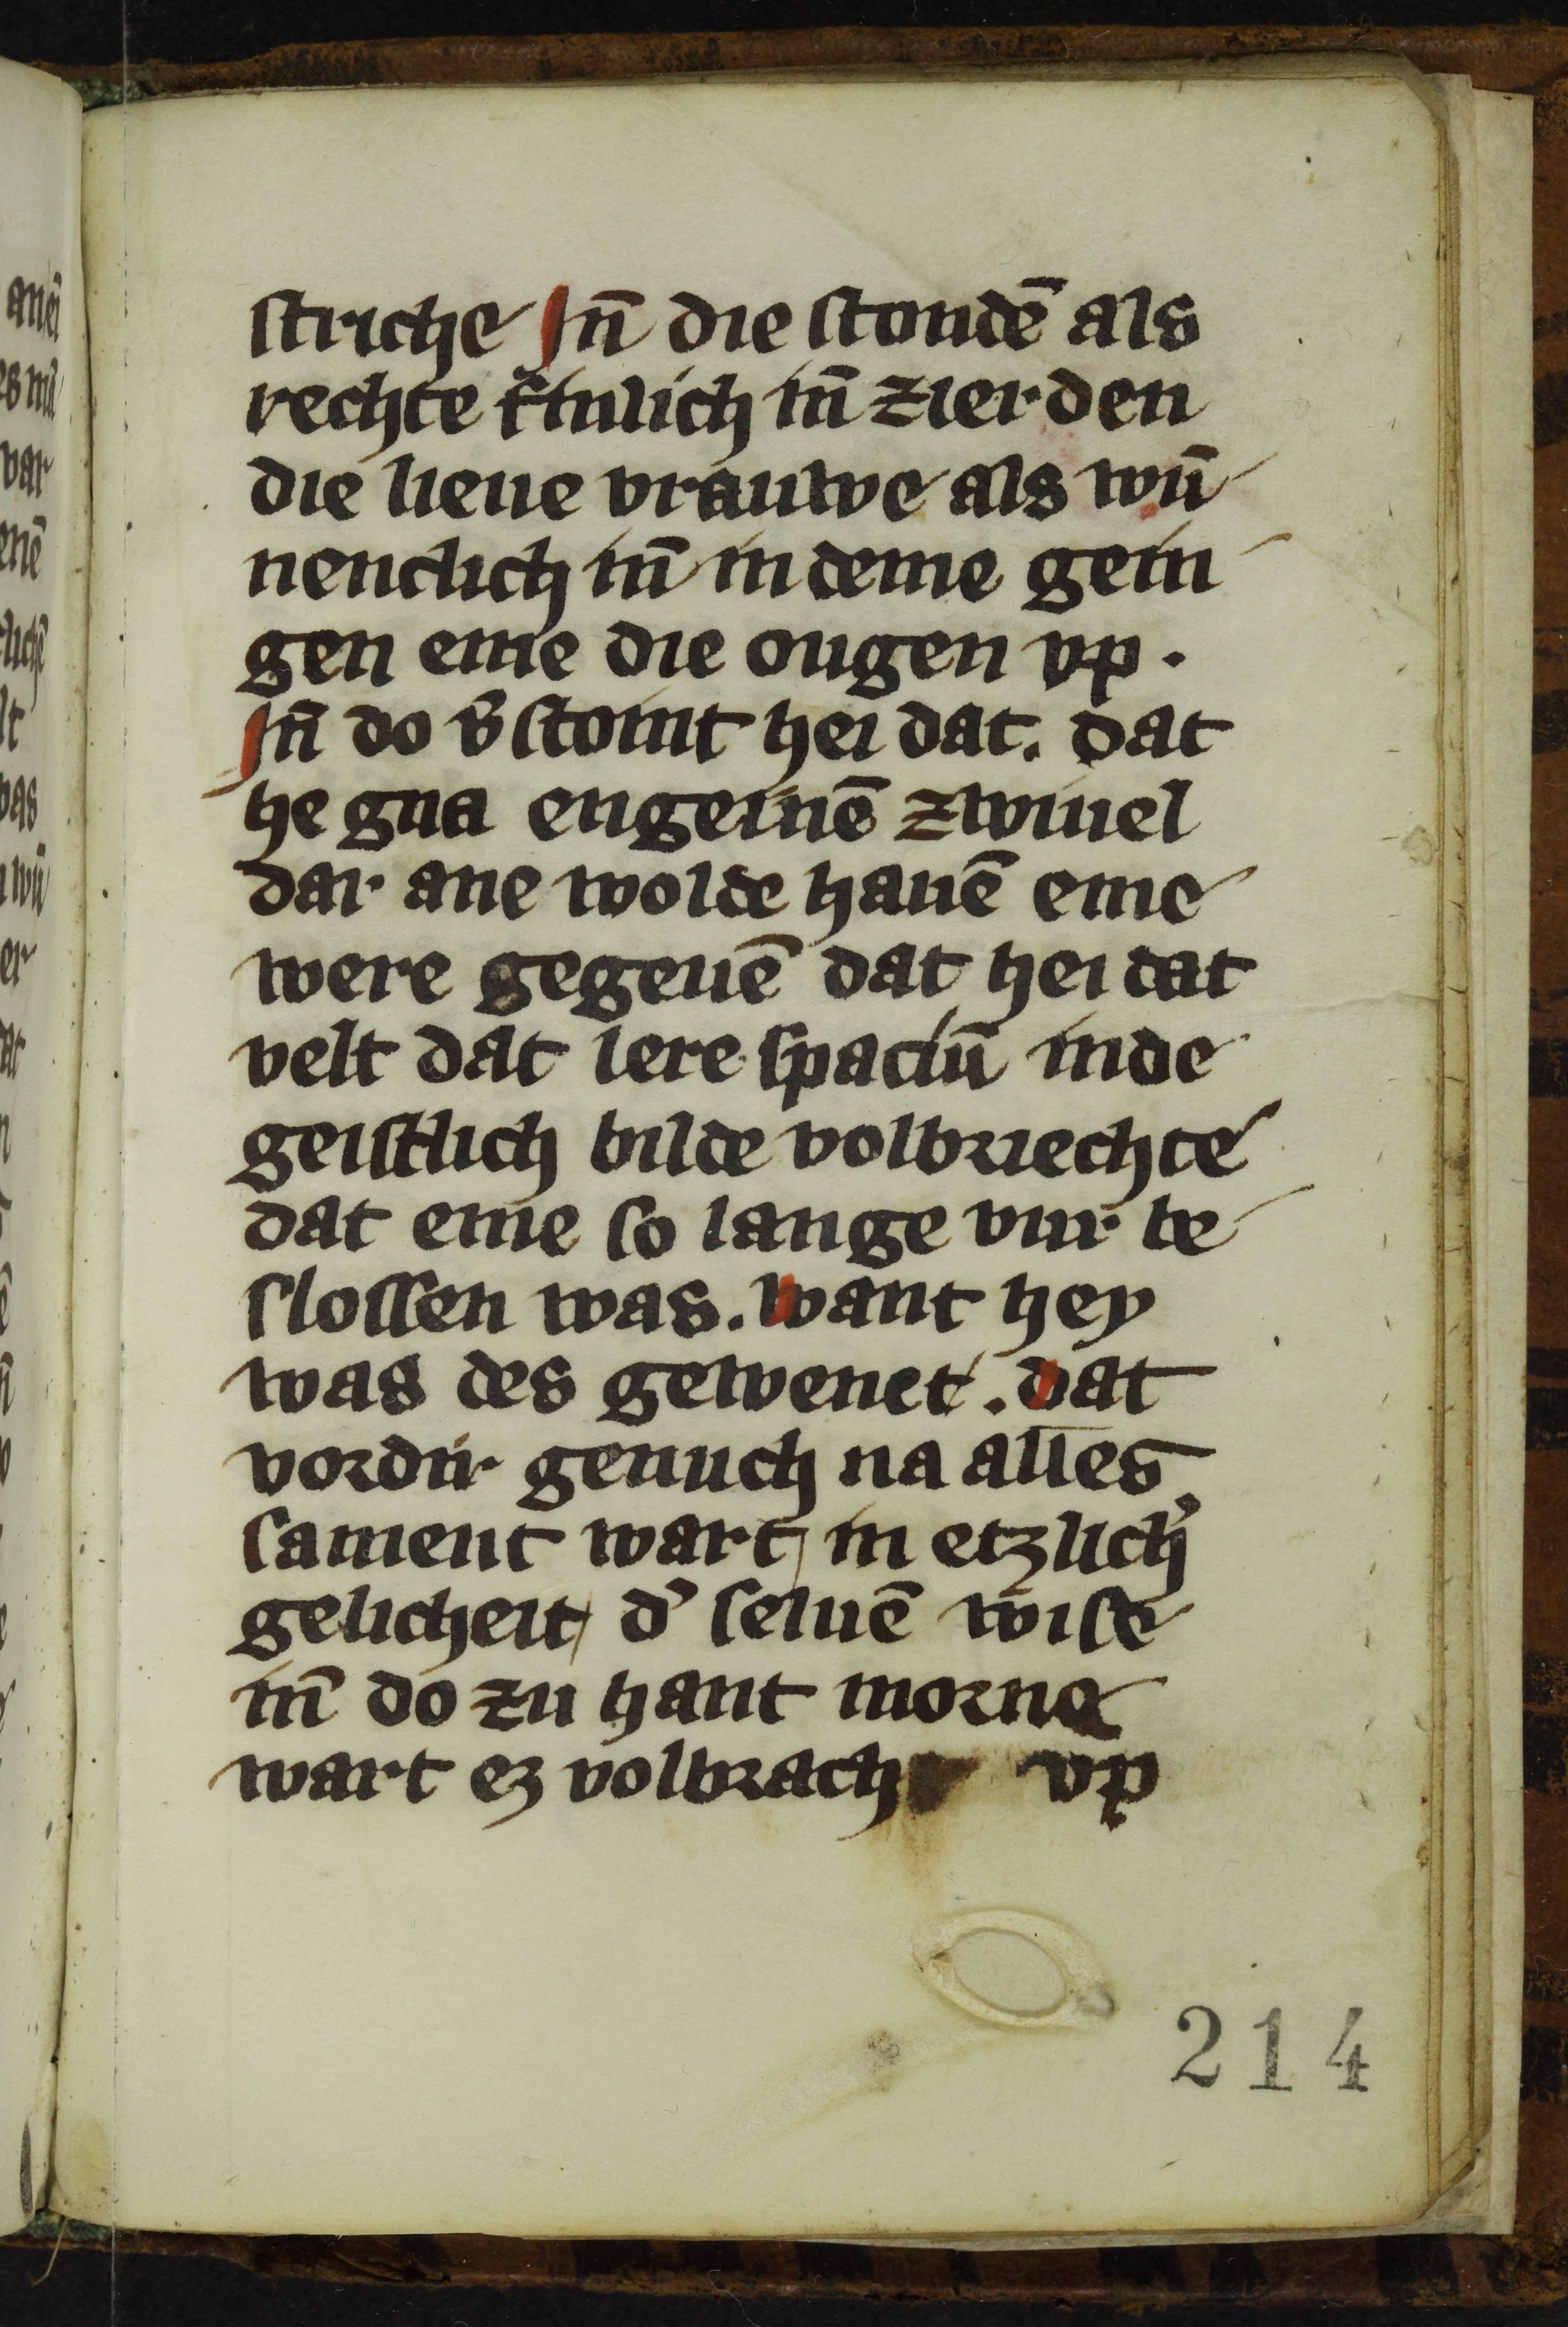 ſtriche Jn̄ die ſtondē als
rechte in̄ zierden
die lieue vrauwe als wū
nenclich in̄ in deme gein
gen eme die ougen vp.
Jn̄ do v̓ſtoint hei dat. dat
he gna engeinē zwiuel
dar ane wolde hauē eme
were gegeuē dat hei dat
velt dat lere ſpaciū inde
geiſtlich bilde volbriechte
dat eme ſo lange vur be
ſloſſen was. want hey
was des gewenet. dat
vordir genuch na alles
ſament wart in etzlich̓
gelicheit d̓ ſeluē wiſe
in̄ do zu hant morne
wart ez volbrach vp
214
anei
var
enē
lichē
lt
was
wū
er
dat